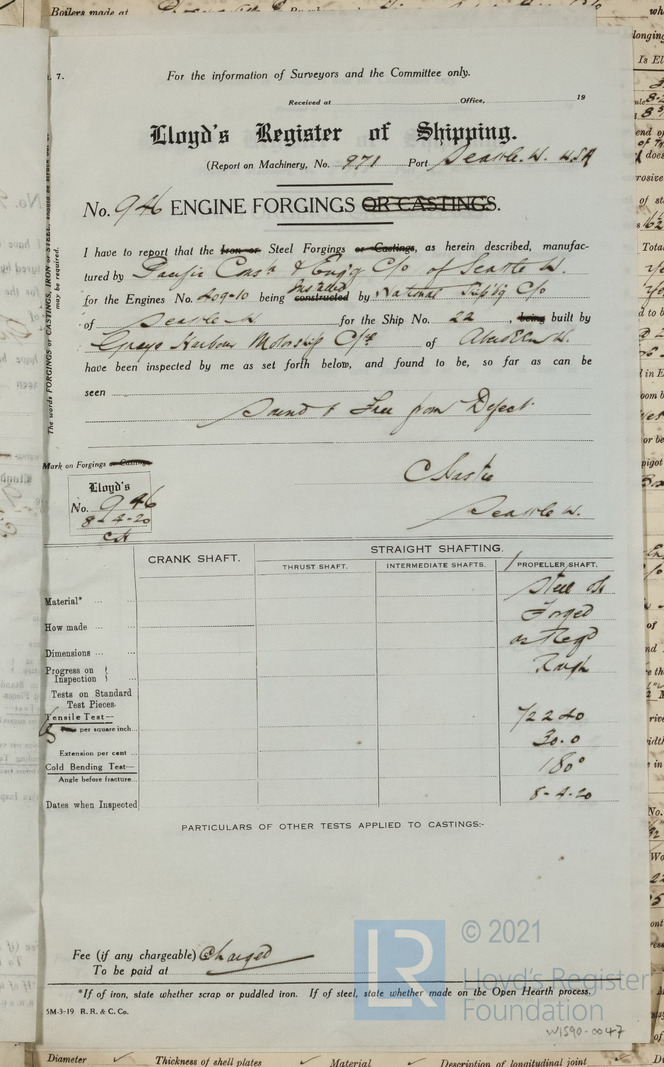 Boilers made at
. 7.
For the information of Surveyors and the Committee only.
Received at Office, 19
Lloyd's Register of Shipping.
(Report on Machinery, No. 971 Port Seattle. W. USA
No. 946 ENGINE FORGINGS OR CASTINGS.
I have to report that the Iron or Steel Forgings or Castings, as herein described, manufac-
tured by Pacific Const & Engig C/o of Seattle W.
for the Engines No. 409-10 being Installed constructed by National C/o
of Seattle W for the Ship No. 22 being built by
Grays Harbour Motorship C/n of Aberdeen W.
have been inspected by me as set forth below, and found to be, so far as can be
seen
Sound & Free from Defect.
The words FORGINGS or CASTINGS, IRON or STEEL, should be struck out as
may be required.
Mark on Forgings or Castings
Lloyd's
No. 946
8-4-20
Seattle W.
CRANK SHAFT.
STRAIGHT SHAFTING.
THRUST SHAFT. INTERMEDIATE SHAFTS. PROPELLER SHAFT.
Material* ... Steel
How made ... Forged
Dimensions ... as Reqd
Progress on Inspection Rough
Tests on Standard
Test Pieces.
Tensile Test— 72240
per square inch...
Extension per cent 30.0
Cold Bending Test— 180°
Angle before fracture
Dates when Inspected 8-4-20
PARTICULARS OF OTHER TESTS APPLIED TO CASTINGS:-
Fee (if any chargeable) Charged
To be paid at
*If of iron, state whether scrap or puddled iron. If of steel, state whether made on the Open Hearth process.
5M-3-19 R. R. & C. Co.
LR
© 2021
Lloyd's Register
Foundation
W1590-0047
Diameter Thickness of shell plates Material Description of longitudinal joint